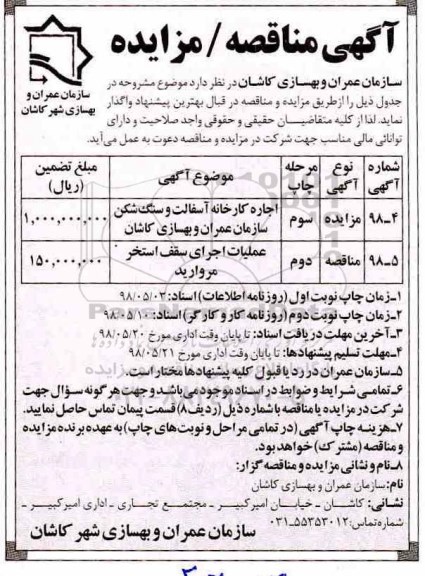 آگهی مناقصه / مزایده
سازمان عمران و
بهسازی شهر کاشان
سازمان عمران و بهسازی کاشان در نظر دارد موضوع مشروحه در
جدول ذیل را ازطریق مزایده و مناقصه در قبال بهترین پیشنهاد واگذار
نماید. لذا از کلیه متقاضیان حقیقی و حقوقی واجد صلاحیت و دارای
توانائی مالی مناسب جهت شرکت در مزایده و مناقصه دعوت به عمل می‌آید.
شماره آگهی نوع آگهی مرحله چاپ موضوع آگهی مبلغ تضمین (ریال)
۹۸-۴ مزایده سوم اجاره کارخانه آسفالت و سنگ‌شکن سازمان عمران و بهسازی کاشان ۱,۰۰۰,۰۰۰,۰۰۰
۹۸-۵ مناقصه دوم عملیات اجرای سقف استخر مروارید ۱۵۰,۰۰۰,۰۰۰
۱-زمان چاپ نوبت اول (روزنامه اطلاعات) اسناد: ۹۸/۰۵/۰۳
۲-زمان چاپ نوبت دوم (روزنامه کار و کارگر) اسناد:
۳-آخرین مهلت دریافت اسناد: تا پایان وقت اداری مورخ ۹۸/۰۵/۲۰
۴-مهلت تسلیم پیشنهادها: تا پایان وقت اداری مورخ ۹۸/۰۵/۲۱
۵-سازمان عمران در رد یا قبول کلیه پیشنهادها مختار است.
۶-تمامی شرایط و ضوابط در اسناد موجود می‌باشد و جهت هر گونه سؤال جهت
شرکت در مزایده یا مناقصه با شماره ذیل (ردیف ۸) قسمت پیمان تماس حاصل نمایید.
۷-هزینه چاپ آگهی (در تمامی مراحل و نوبت‌های چاپ) به عهده برنده مزایده
و مناقصه (مشترک) خواهد بود.
۸-نام و نشانی مزایده و مناقصه گزار:
نام: سازمان عمران و بهسازی کاشان
نشانی: کاشان - خیابان امیرکبیر - مجتمع تجاری - اداری امیرکبیر -
شماره تماس: ۰۳۱-۵۵۳۵۳۰۱۲
سازمان عمران و بهسازی شهر کاشان